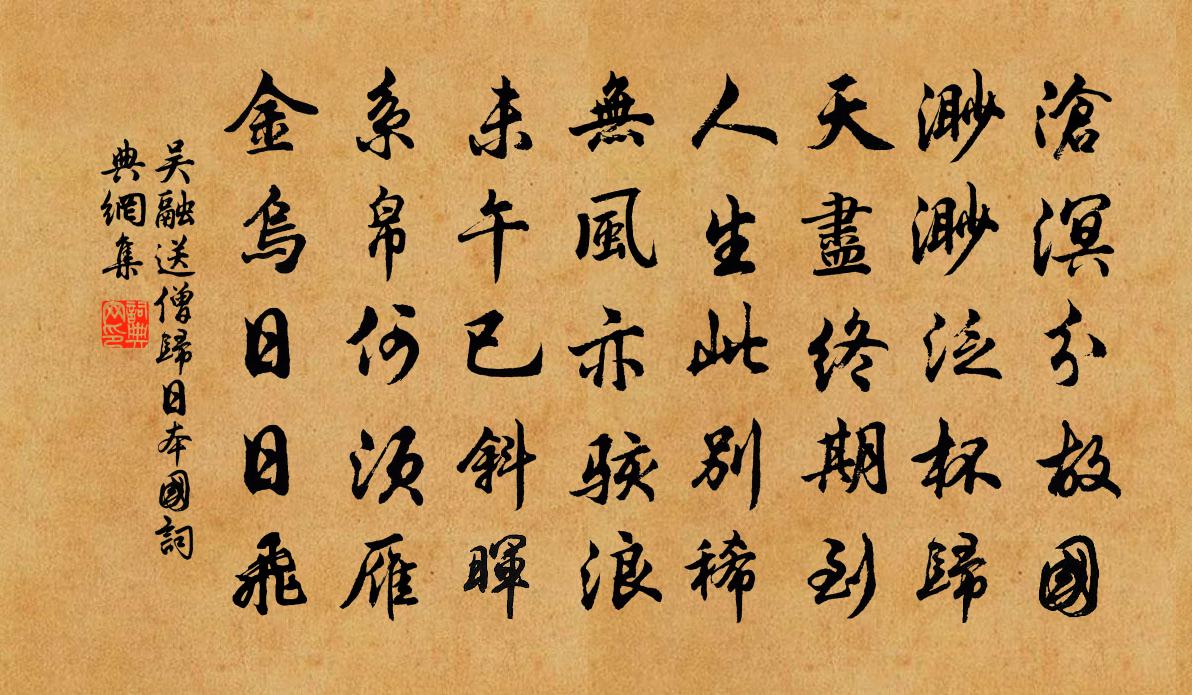 滄溟分故國
渺渺泛杯歸
天盡終期到
人生此別稀
無風亦駭浪
未午已斜暉
系帛何須雁
金烏日日飛
吳融送僧歸日本國詞
典網集
詞典
网印